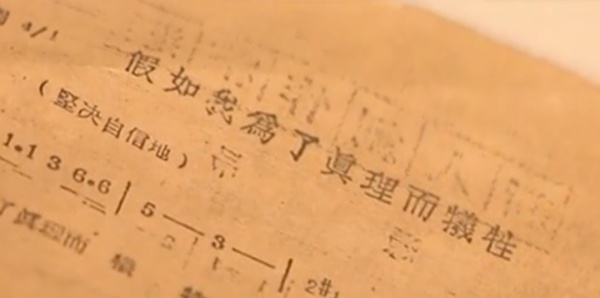 4/1
假如我為了眞理而犠牲
（堅决自信地）
1·1 3 6·6 | 5 — 3 — | 2#
了眞理而犠